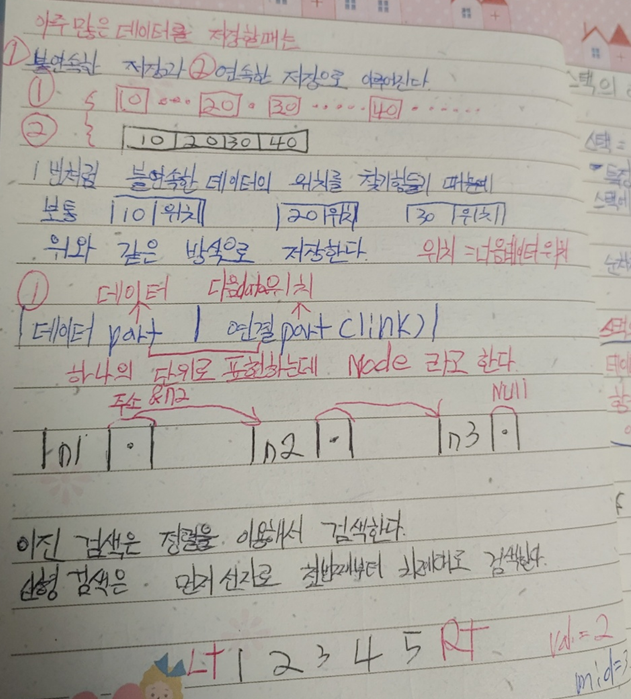 아주 많은 데이터를 저장할때는
① 불연속한 저장과 ② 연속한 저장으로 이루어진다.
① 10 20 30 40
② 10 20 30 40
1번처럼 불연속한 데이터의 위치를 찾기힘들기 때문에
보통 10 위치 20 위치 30 위치
위와 같은 방식으로 저장한다. 위치 = 다음데이터위치
① 데이터 다음data위치
데이터 part 연결part (link)
하나의 단위로 표현하는데 Node 라고 한다.
주소 &n2 Null
n1 n2 n3
이진 검색은 정렬을 이용해서 검색한다.
선형 검색은 먼저 선자로 첫번째부터 차례대로 검색한다.
LT 1 2 3 4 5 RT
val = 2
mid = 3
스택의
스택 =